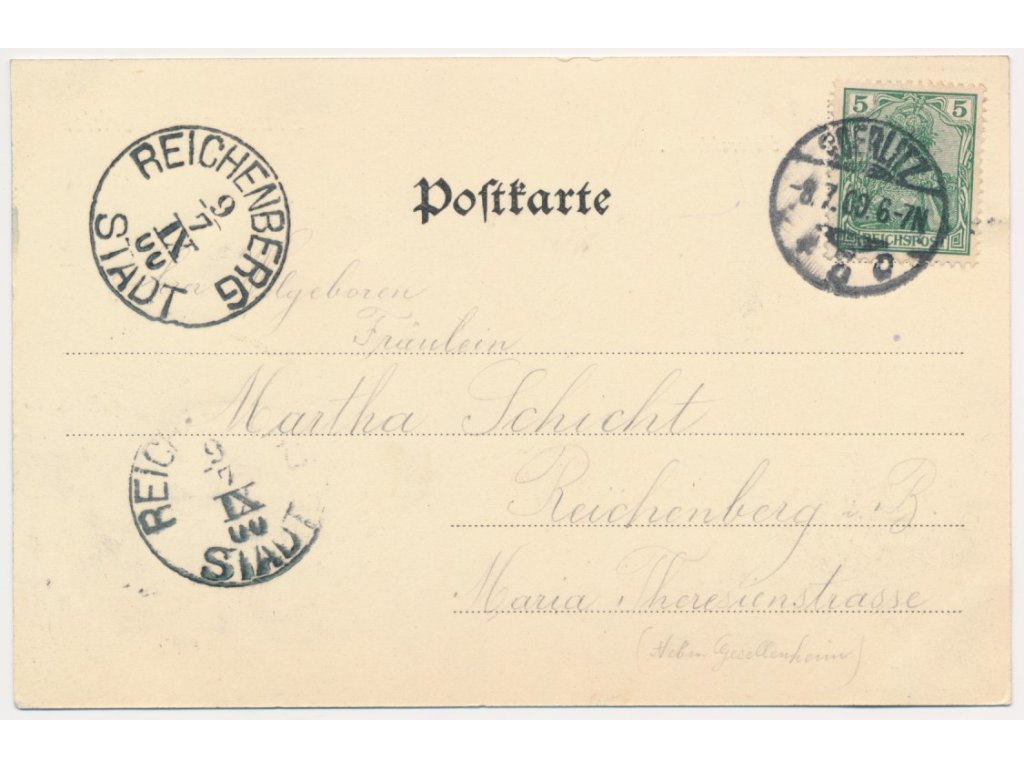 5 5
REICHSPOST
GOERLITZ
-8.7.00.6-7N
a
REICHENBERG
9
7
IX
00
STADT
Postkarte
Wohlgeboren
Fräulein
Martha Schicht
Reichenberg i. B.
Maria Theresienstrasse
(Neben Gesellenheim)
REIC
9
7
IX
00
STADT